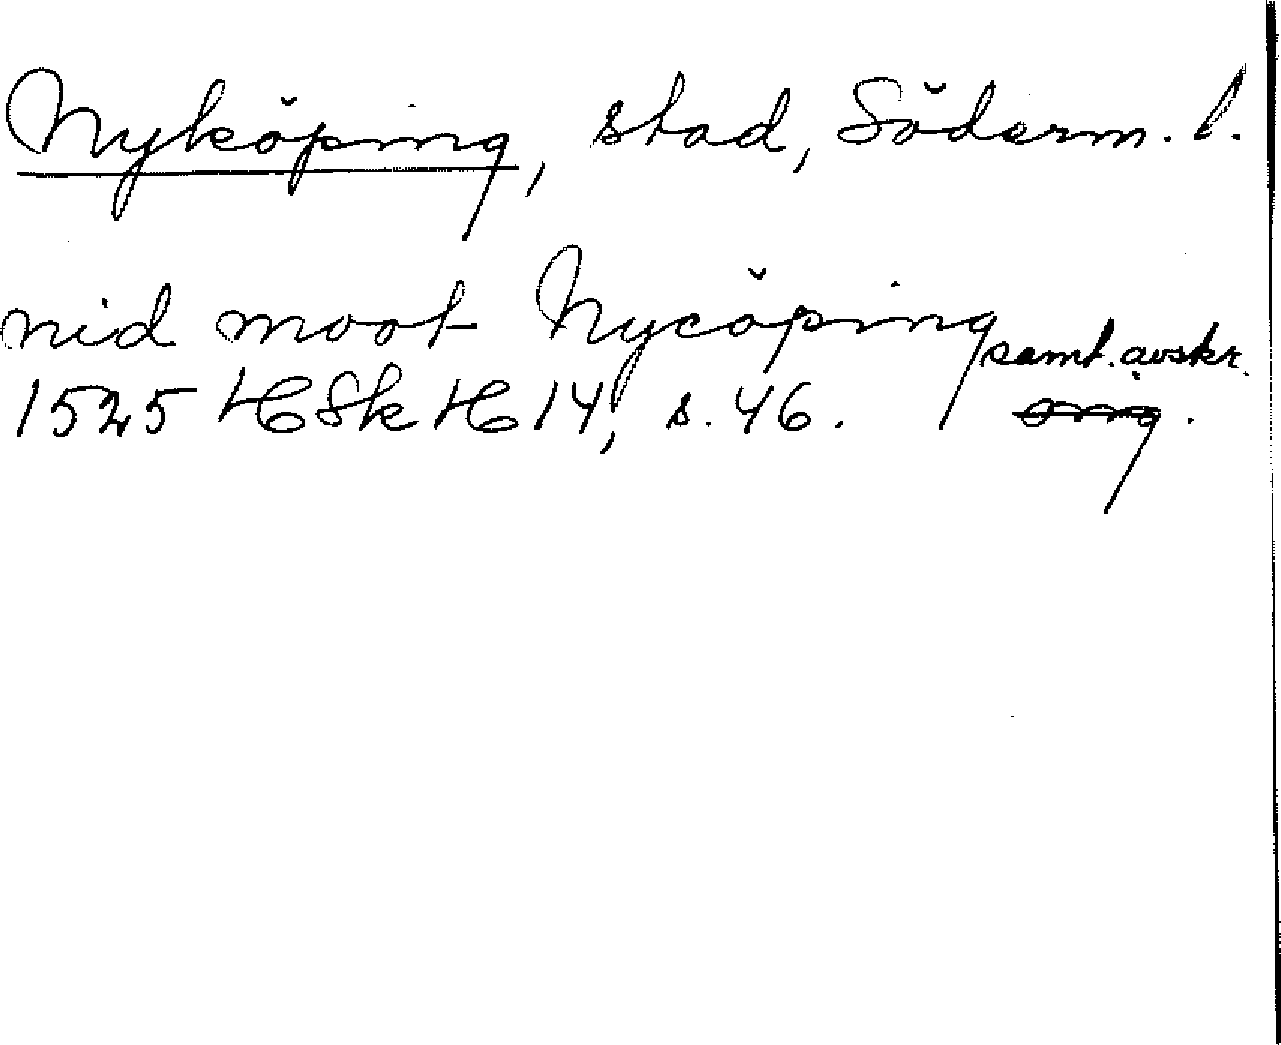 Nyköping, stad, Söderm. l.
nid moot Nycöping samt. avskr.
1525 HSkH 14, s. 46. orig.